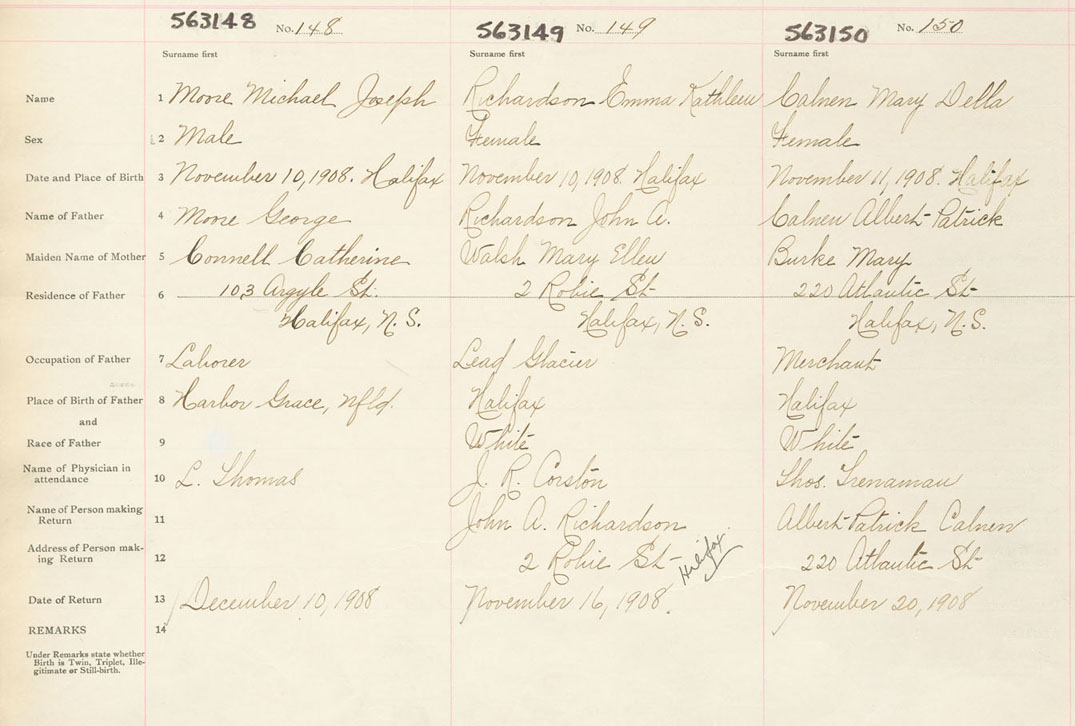 563148 No. 148 563149 No. 149 563150 No. 150
Surname first Surname first Surname first
Name 1 Moore Michael Joseph Richardson Emma Kathleen Calnen Mary Della
Sex 2 Male Female Female
Date and Place of Birth 3 November 10, 1908. Halifax November 10, 1908. Halifax November 11, 1908. Halifax
Name of Father 4 Moore George Richardson John A. Calnen Albert Patrick
Maiden Name of Mother 5 Connell Catherine Walsh Mary Ellen Burke Mary
Residence of Father 6 103 Argyle St. 2 Robie St 220 Atlantic St
Halifax, N.S. Halifax, N.S. Halifax, N.S.
Occupation of Father 7 Laborer Lead Glacier Merchant
Place of Birth of Father 8 Harbor Grace, Nfld. Halifax Halifax
and
Race of Father 9 White White
Name of Physician in
attendance 10 L. Thomas J. R. Corston Thos. Trenaman
Name of Person making
Return 11 John A. Richardson Albert Patrick Calnen
Address of Person mak-
ing Return 12 2 Robie St Halifax 220 Atlantic St
Date of Return 13 December 10, 1908 November 16, 1908 November 20, 1908
REMARKS 14
Under Remarks state whether
Birth is Twin, Triplet, Ille-
gitimate or Still-birth.